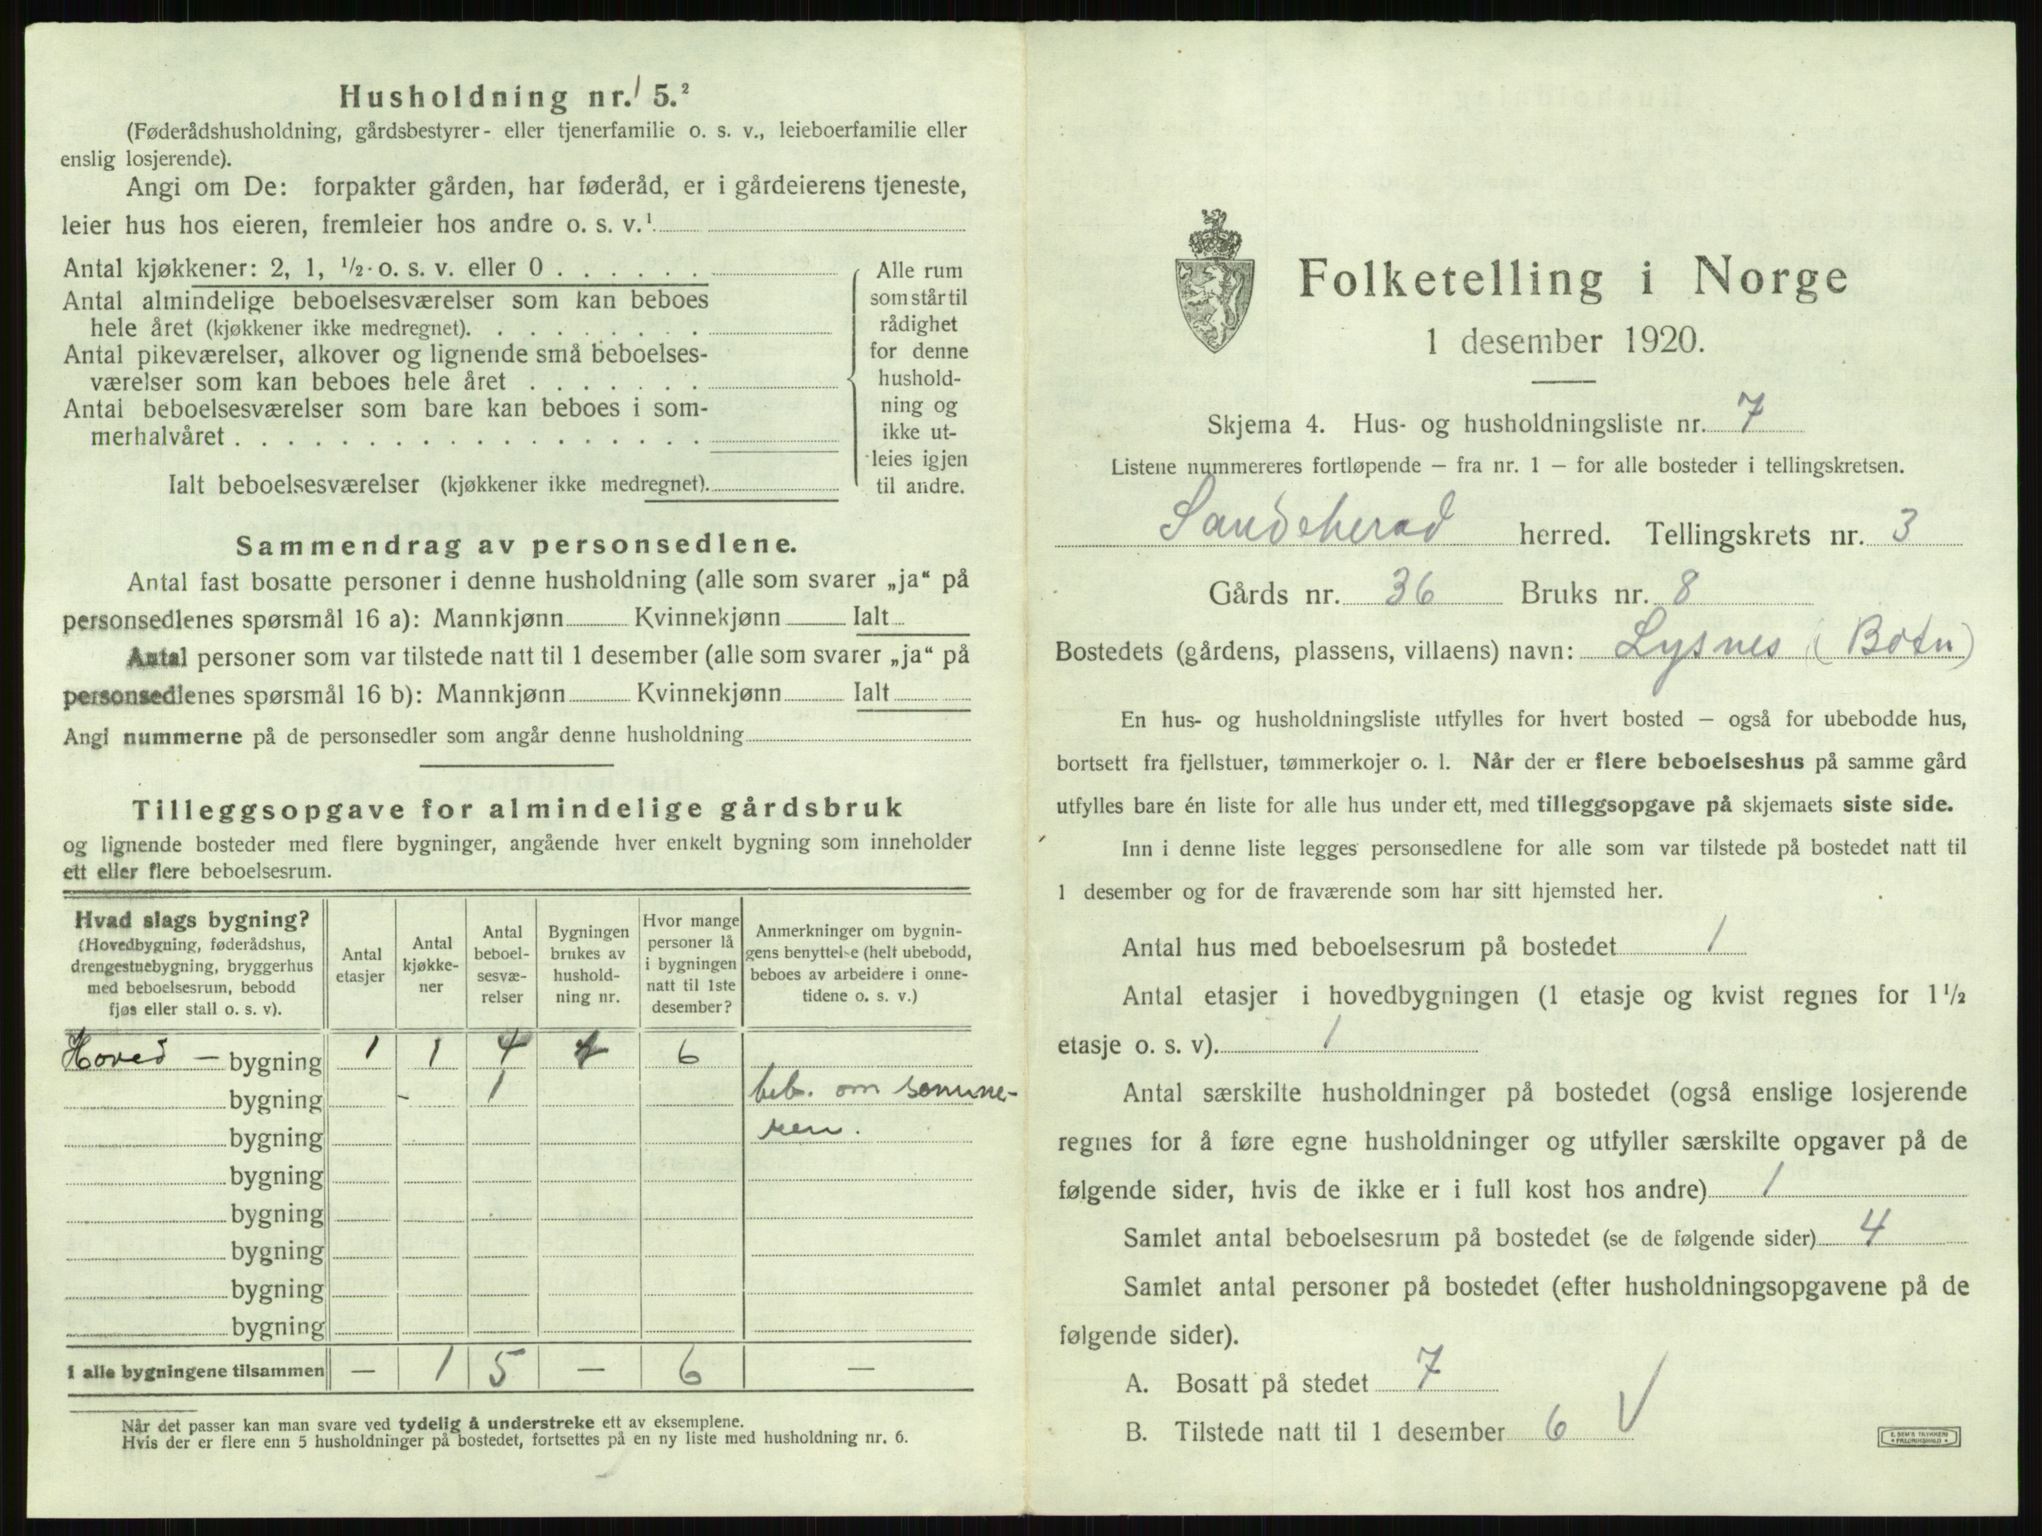 Husholdning nr. 5.²
(Føderådshusholdning, gårdsbestyrer- eller tjenerfamilie o. s. v., leieboerfamilie eller
enslig losjerende).
Angi om De: forpakter gården, har føderåd, er i gårdeierens tjeneste,
leier hus hos eieren, fremleier hos andre o. s. v.¹
Antal kjøkkener: 2, 1, ½ o. s. v. eller 0 . . . . . .
Antal almindelige beboelsesværelser som kan beboes
hele året (kjøkkener ikke medregnet). . . . . . . . .
Antal pikeværelser, alkover og lignende små beboelses-
værelser som kan beboes hele året . . . . . . .
Antal beboelsesværelser som bare kan beboes i som-
merhalvåret . . . . . . . . . . . . . . . . . .
Ialt beboelsesværelser (kjøkkener ikke medregnet).
Alle rum
som står til
rådighet
for denne
hushold-
ning og
ikke ut-
leies igjen
til andre.
Sammendrag av personsedlene.
Antal fast bosatte personer i denne husholdning (alle som svarer „ja“ på
personsedlenes spørsmål 16 a): Mannkjønn Kvinnekjønn Ialt
Antal personer som var tilstede natt til 1 desember (alle som svarer „ja“ på
personsedlenes spørsmål 16 b): Mannkjønn Kvinnekjønn Ialt
Angi nummerne på de personsedler som angår denne husholdning
Tilleggsopgave for almindelige gårdsbruk
og lignende bosteder med flere bygninger, angående hver enkelt bygning som inneholder
ett eller flere beboelsesrum.
Hvad slags bygning?
(Hovedbygning, føderådshus,
drengestuebygning, bryggerhus
med beboelsesrum, bebodd
fjøs eller stall o. s. v).
Antal
etasjer
Antal
kjøkke-
ner
Antal
beboel-
sesvæ-
relser
Bygningen
brukes av
hushold-
ning nr.
Hvor mange
personer lå
i bygningen
natt til 1ste
desember?
Anmerkninger om bygnin-
gens benyttelse (helt ubebodd,
beboes av arbeidere i onne-
tidene o. s. v.)
Hoved – bygning 1 1 4 1 6
bygning - 1 beb. om somme-
bygning ren.
bygning
bygning
bygning
bygning
bygning
I alle bygningene tilsammen — 1 5 — 6 —
Når det passer kan man svare ved tydelig å understreke ett av eksemplene.
Hvis der er flere enn 5 husholdninger på bostedet, fortsettes på en ny liste med husholdning nr. 6.
Folketelling i Norge
1 desember 1920.
Skjema 4. Hus- og husholdningsliste nr. 7
Listene nummereres fortløpende – fra nr. 1 – for alle bosteder i tellingskretsen.
Sandeherad herred. Tellingskrets nr. 3
Gårds nr. 36 Bruks nr. 8
Bostedets (gårdens, plassens, villaens) navn: Lysnes (Botn)
En hus- og husholdningsliste utfylles for hvert bosted – også for ubebodde hus,
bortsett fra fjellstuer, tømmerkojer o. l. Når der er flere beboelseshus på samme gård
utfylles bare én liste for alle hus under ett, med tilleggsopgave på skjemaets siste side.
Inn i denne liste legges personsedlene for alle som var tilstede på bostedet natt til
1 desember og for de fraværende som har sitt hjemsted her.
Antal hus med beboelsesrum på bostedet 1
Antal etasjer i hovedbygningen (1 etasje og kvist regnes for 1½
etasje o. s. v). 1
Antal særskilte husholdninger på bostedet (også enslige losjerende
regnes for å føre egne husholdninger og utfyller særskilte opgaver på de
følgende sider, hvis de ikke er i full kost hos andre) 1
Samlet antal beboelsesrum på bostedet (se de følgende sider) 4
Samlet antal personer på bostedet (efter husholdningsopgavene på de
følgende sider).
A. Bosatt på stedet 7
B. Tilstede natt til 1 desember 6 √